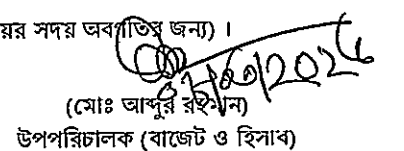 য়র সদয় অবগতির জন্য) ।
(মোঃ আব্দুর রহমান)
উপপরিচালক (বাজেট ও হিসাব)